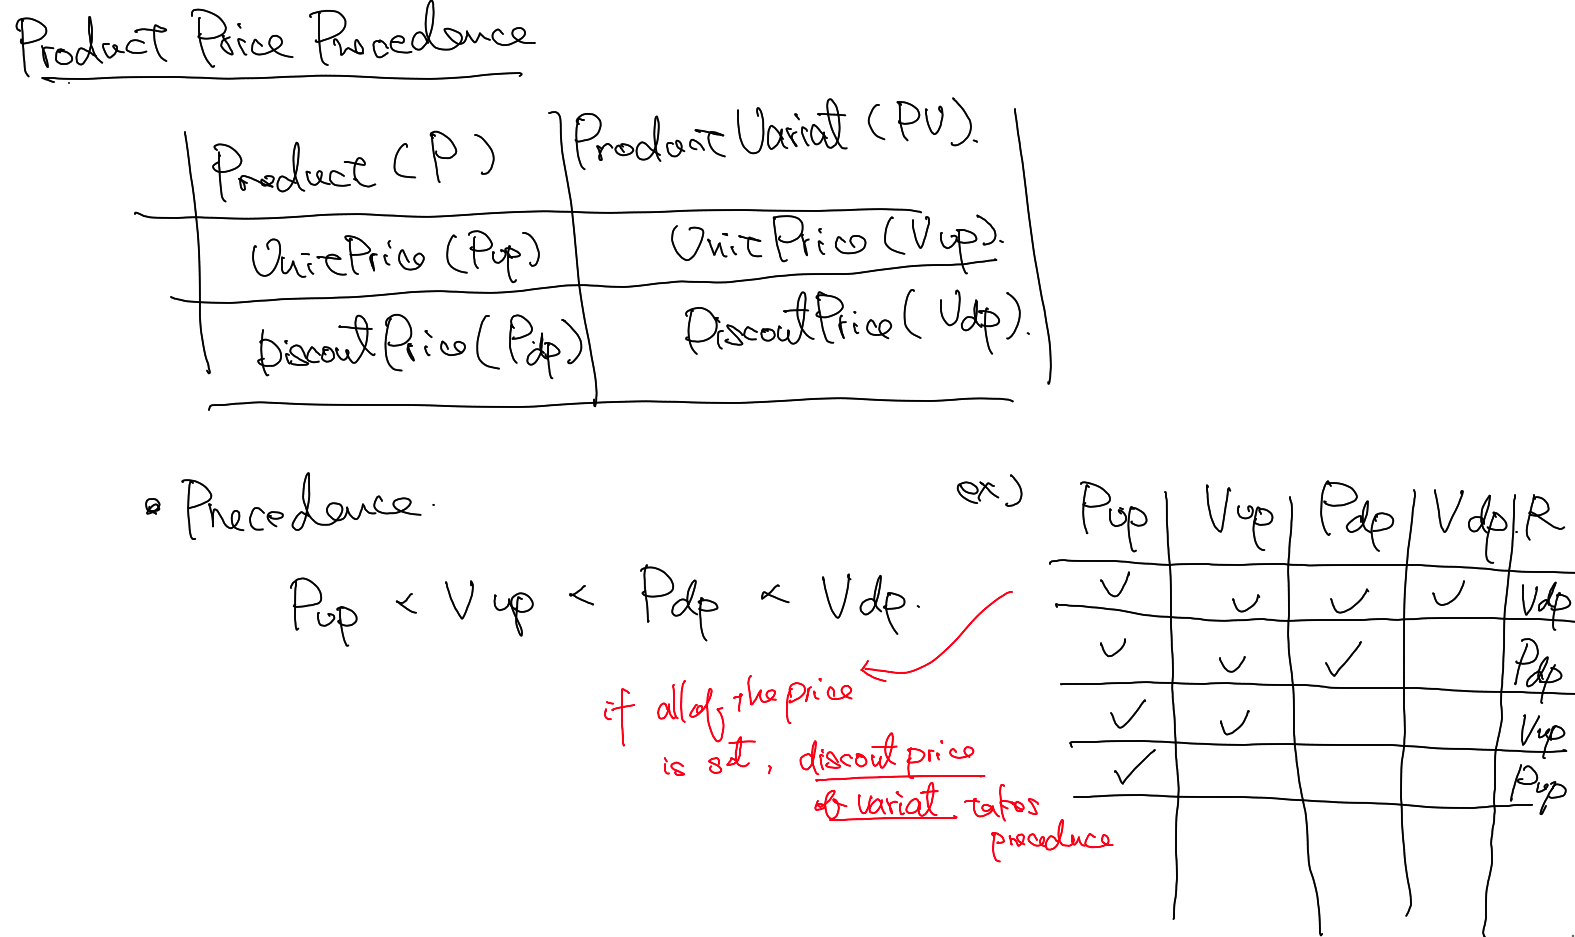 Product Price Precedence
Product (P) Product Variat (PV).
UnitPrice (Pup) UnitPrice (Vup).
DiscoutPrice (Pdp) DiscoutPrice (Vdp).
• Precedence.
Pup < Vup < Pdp < Vdp.
if all of the price
is set, discout price
of variat takes
preceduce
ex)
Pup Vup Pdp Vdp R
✓ ✓ ✓ ✓ Vdp
✓ ✓ ✓ Pdp
✓ ✓ Vup
✓ Pup